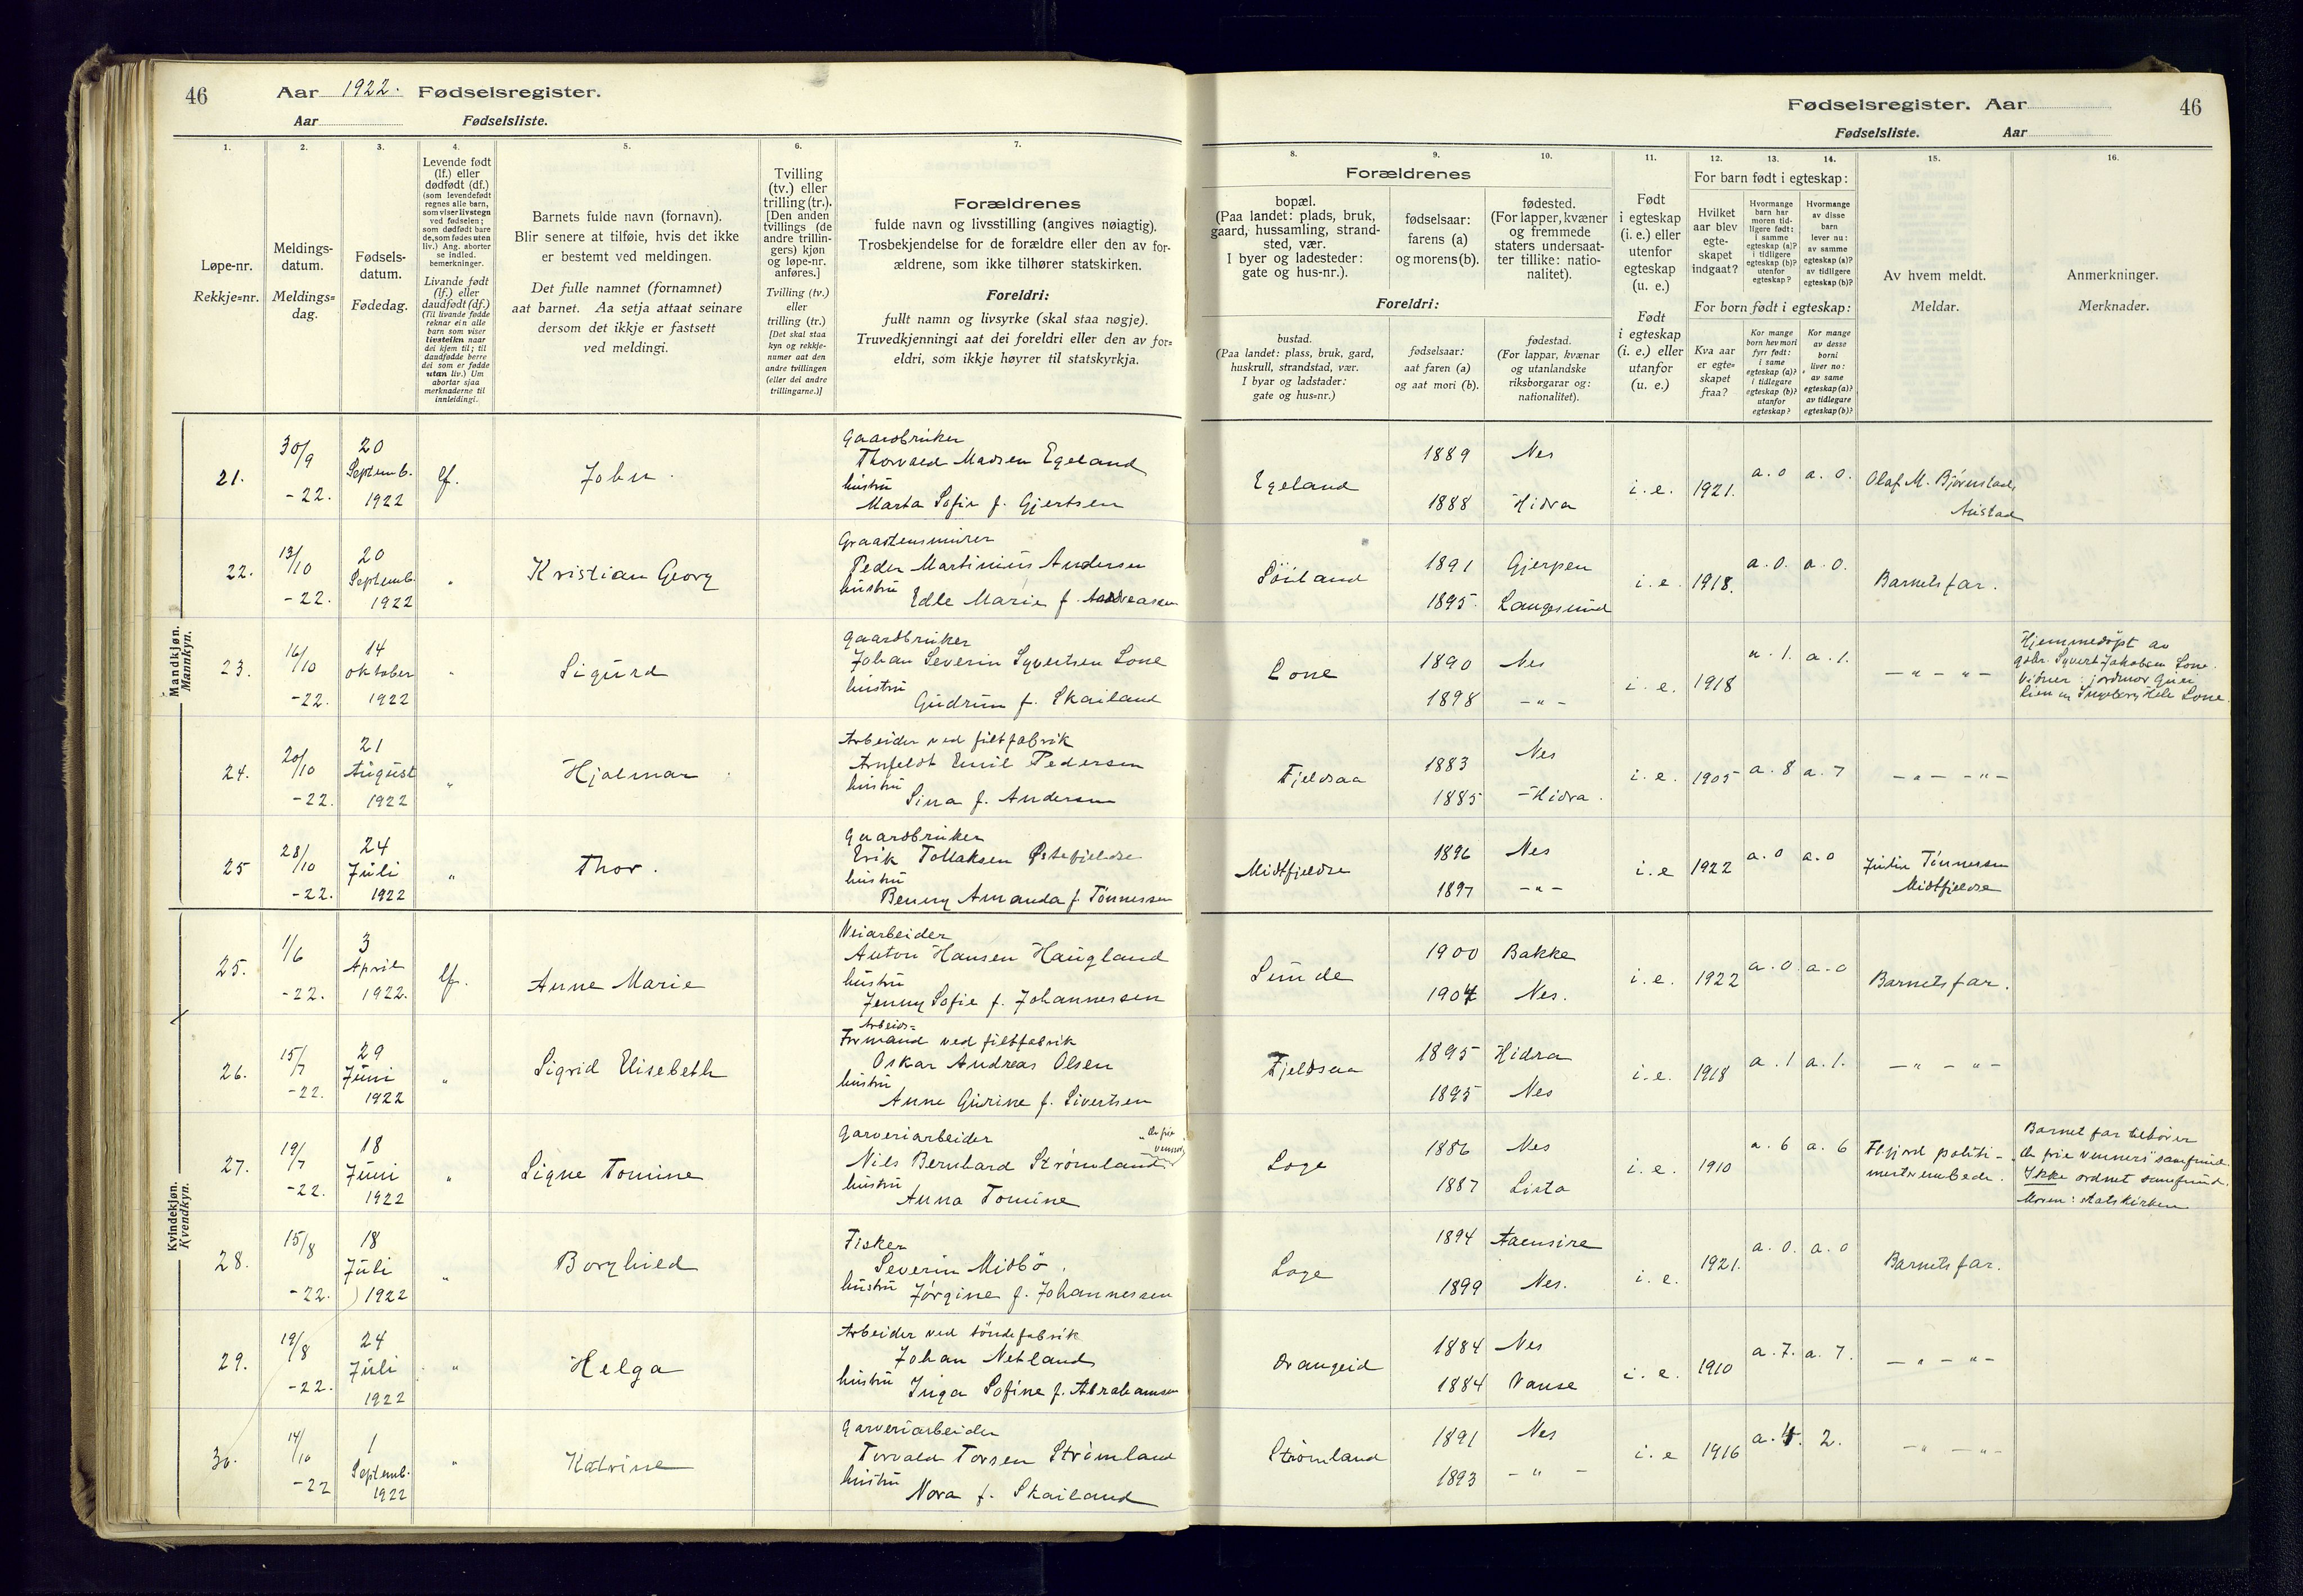 46
Aar 1922. Fødselsregister.
Aar Fødselsliste.
1.
Løpe-nr.
Rekkje=nr.
2.
Meldings-
datum.
Meldings=
dag.
3.
Fødsels-
datum.
Fødedag.
4.
Levende født
(lf.) eller
dødfødt (df.)
(som levendefødt
regnes alle barn,
som viser livstegn
ved fødselen;
som dødfødt bare
de, som fødes uten
liv.) Ang. aborter
se indled.
bemerkninger.
Livande født
(lf.) eller
daudfødt (df.)
(Til livande fødde
reknar ein alle
barn som viser
livsteikn naar
dei kjem til; til
daudfødde berre
dei som er fødde
utan liv.) Um
abortar sjaa
merknaderne til
innleidingi.
5.
Barnets fulde navn (fornavn).
Blir senere at tilføie, hvis det ikke
er bestemt ved meldingen.
Det fulle namnet (fornamnet)
aat barnet. Aa setja attaat seinare
dersom det ikkje er fastsett
ved meldingi.
6.
Tvilling
(tv.) eller
trilling (tr.).
[Den anden
tvillings (de
andre trillin-
gers) kjøn
og løpe-nr.
anføres.]
Tvilling (tv.)
eller
trilling (tr.)
[Det skal staa
kyn og rekkje-
numer aat den
andre tvillingen
(eller dei andre
trillingarne.)]
7.
Forældrenes
fulde navn og livsstilling (angives nøiagtig).
Trosbekjendelse for de forældre eller den av for-
ældrene, som ikke tilhører statskirken.
Foreldri:
fullt namn og livsyrke (skal staa nøgje).
Truvedkjenningi aat dei foreldri eller den av for=
eldri, som ikkje høyrer til statskyrkja.
Mandkjøn.
Mannkyn.
21.
30/9
-22.
20
Septemb.
1922
lf.
John.
Gaardbruker
Thorvald Madsen Egeland
hustru
Marta Sofie f. Gjertsen
22.
13/10
-22.
20
Septemb.
1922
"
Kristian Georg
Graastensmurer
Peder Martinius Andersen
hustru
Edle Marie f. Andreasen
23.
16/10
-22.
14
oktober
1922
"
Sigurd
Gaardbruker
Johan Severin Syvertsen Lone
hustru
Gudrun f. Skailand
24.
20/10
-22.
21
August
1922
"
Hjalmar
Arbeider ved filtfabrik
Anfeldt Emil Pedersen
hustru
Sina f. Andersen
25
28/10
-22.
24
Juli
1922
"
Thor.
Gaardbruker
Erik Tollaksen
hustru
Benny Amanda f. Tönnessen
Kvindekjøn.
Kvendkyn.
25.
1/6
-22.
3
April
1922.
lf.
Anne Marie
Veiarbeider
Anton Hansen Haugland
hustru
Jenny Sofie f. Johannessen
26.
15/7
-22.
29
Juni
1922
"
Sigrid Elisebeth
Arbeids=
Formand ved filtfabrik
Oskar Andreas Olsen
hustru
Anne Gurine f. Sivertsen
27.
19/7
-22.
18
Juni
1922
"
Signe Tomine
Garveriarbeider
Nils Bernhard Strömland
hustru
Anna Tomine
28.
15/8
-22.
18
Juli
1922
"
Borghild
Fisker
Severin Midbö.
hustru Jörgine f. Johannessen
29.
19/8
-22.
24
Juli
1922
"
Helga
Arbeider ved töndefabrik
Johan Netland
hustru Inga Sofine f. Abrahamsen
30.
14/10
-22
1
Septemb.
1922
"
Katrine
Garveriarbeider
Torvald Torsen Strömland
hustru
Nora f. Skailand
Fødselsregister. Aar
46
Fødselsliste. Aar
8.
Forældrenes
bopæl.
(Paa landet: plads, bruk,
gaard, hussamling, strand-
sted, vær.
I byer og ladesteder:
gate og hus-nr.).
Foreldri:
bustad.
(Paa landet: plass, bruk, gard,
huskrull, strandstad, vær.
I byar og ladstader:
gate og hus=nr.)
9.
fødselsaar:
farens (a)
og morens (b).
fødselsaar:
aat faren (a)
og aat mori (b).
10.
fødested.
(For lapper, kvæner
og fremmede
staters undersaat-
ter tillike: natio-
nalitet).
fødestad.
(For lappar, kvænar
og utanlandske
riksborgarar og:
nationalitet).
11.
Født
i egteskap
(i. e.) eller
utenfor
egteskap
(u. e.)
Født
i egteskap
(i. e.) eller
utanfor
(u. e.)
12.
13.
14.
For barn født i egteskap:
Hvilket
aar blev
egte-
skapet
indgaat?
Hvormange
barn har
moren tid-
ligere født:
i samme
egteskap (a)?
i tidligere
egteskap (b)?
utenfor
egteskap?
Hvormange
av disse
barn
lever nu:
av samme
egteskap (a)?
av tidligere
egteskap (b)?
For born født i egteskap:
Kva aar
er egte=
skapet
fraa?
Kor mange
born hev mori
fyrr født:
i same
egteskap (a)?
i tidlegare
egteskap (b)?
utanfor
egteskap?
Kor mange
av desse
borni
liver no:
av same
egteskap (a)?
av tidlegare
egteskap (b)?
15.
Av hvem meldt.
Meldar.
16.
Anmerkninger.
Merknader.
Egeland
1889
1888
Nes
Hidra
i. e.
1921.
a. 0
a. 0.
Olaf M. Bjørnstad,
Austad
1891
1895.
Gjerpen
Langesund
i. e.
1918.
a. 0.
a. 0.
Barnets far.
Lone
1890
1898
Nes
- " -
i. e.
1918
a. 1.
a. 1.
- " - " -
Hjemmedöpt av
gdbr. Syvert Jakobsen Lone.
Vidner: jordmor
Lien og Ingeborg Lone.
Fjeldsaa
1883
1885
Nes
- Hidra.
i. e.
1905
a. 8
a. 7
- " - - " -
Midtfjeldse
1896
1897
Nes
- " -
i. e
1922
a. 0
a. 0
Tönnessen
Midtfjeldse
Sunde
1900
1904
Bakke
Nes.
i. e.
1922
a. 0.
a. 0
Barnets far.
Fjeldsaa
1895
1895
Hidra
Nes
i. e.
1918
a. 1
a. 1.
- " - " -
Loge
1886
1887
Nes
Lista
i. e.
1910
a. 6
a. 6
Flfjord politi-
mesterembede.
Barnet far tilhörer
"de frie venners" samfund.
Ikke ordnet samfund.
Moren: statskirken
Loge
1894
1899
Aaensire
Nes.
i. e.
1921.
a. 0.
a. 0
Barnets far.
Drangeid
1884
1884
Nes
Vanse
i. e.
1910
a. 7.
a. 7.
- " - " -
Strömland
1891
1893
Nes
- " -
i. e
1916
2.
- " - " -